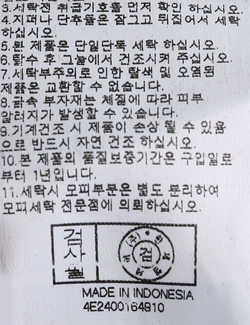 3.세탁전 취급기호를 먼저 확인 하십시오.
4.지퍼나 단추물은 잠그고 뒤집어서 세탁
하십시오.
5.본 제품은 단일단독 세탁 하십시오.
6.탈수 후 그늘에서 건조시켜 주십시오.
7.세탁부주의로 인한 탈색 및 오염된
제품은 교환할 수 없습니다.
8.금속 부자재는 체질에 따라 피부
알러지가 발생할 수 있습니다.
9.기계건조 시 제품이 손상 될 수 있음
으로 반드시 자연 건조 하십시오.
10.본 제품의 품질보증기간은 구입일로
부터 1년입니다.
11.세탁시 모피부분은 별도 분리하여
모피세탁 전문점에 의뢰하십시오.
검사필
검
MADE IN INDONESIA
4E2400164910